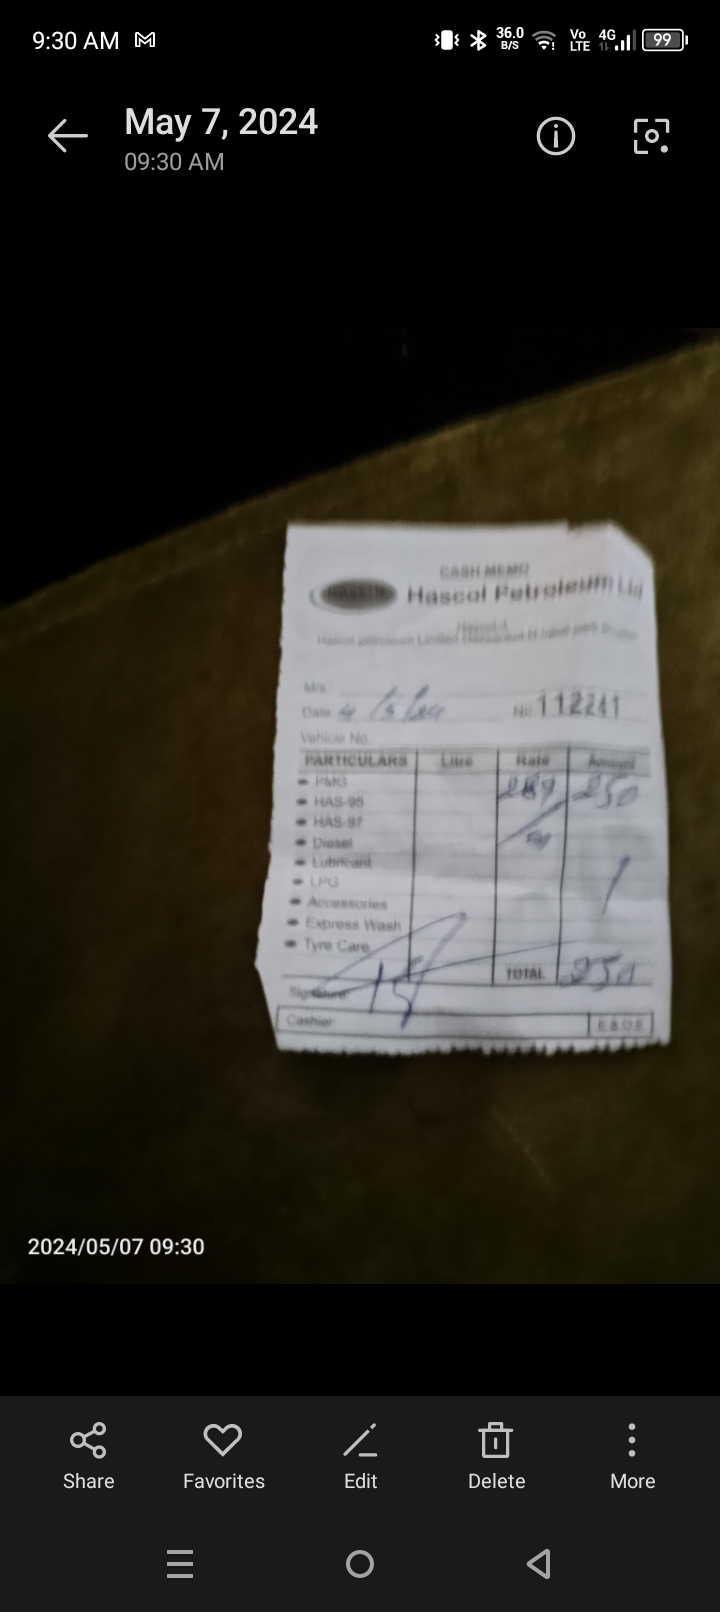 9:30 AM
36.0 B/S
Vo LTE
4G
99
May 7, 2024
09:30 AM
CASH MEMO
HASCOL Hascol Petroleum Ltd
Hascol petroleum Limited
M/s.
Date 4/5/24 No. 112241
Vehicle No.
PARTICULARS Litre Rate Amount
PMG 289 250
HAS-95
HAS-97
Diesel
Lubricant
LPG
Accessories
Express Wash
Tyre Care
TOTAL 250
Signature
Cashier E.&.O.E
2024/05/07 09:30
Share Favorites Edit Delete More